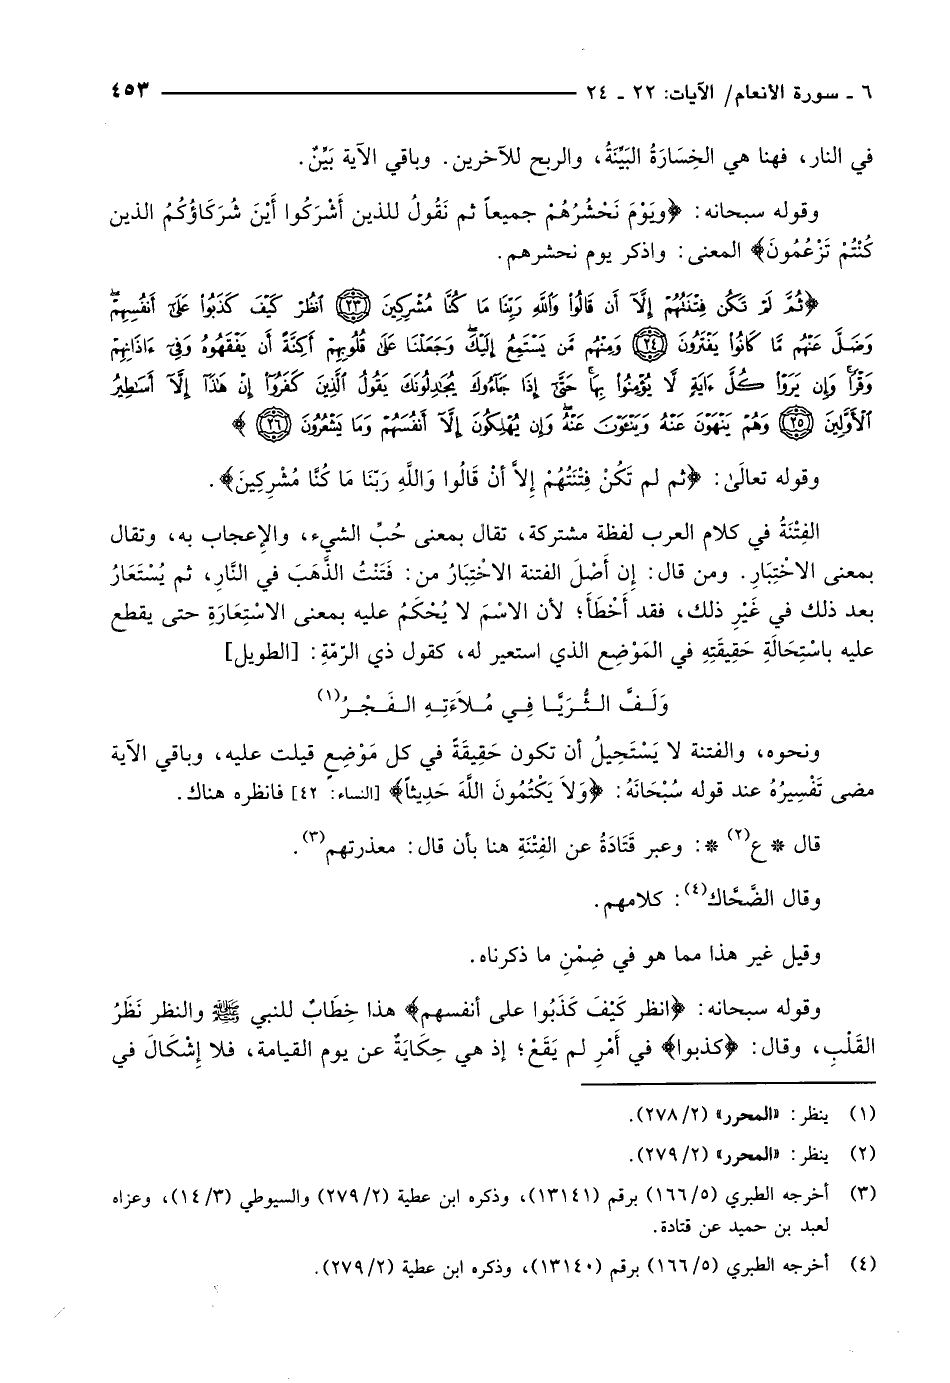 ٦ ـ سورة الأنعام/ الآيات: ٢٢ ـ ٢٤ ٤٥٣
في النار، فهنا هي الخِسَارَةُ البَيِّنَةُ، والربح للآخرين. وباقي الآية بَيِّنٌ.
وقوله سبحانه: ﴿ويَوْمَ نَحْشُرُهُمْ جميعاً ثم نَقُولُ للذين أَشْرَكُوا أَيْنَ شُرَكَاؤُكُمُ الذين
كُنْتُمْ تَزْعُمُونَ﴾ المعنى: واذكر يوم نحشرهم.
﴿ثُمَّ لَمْ تَكُن فِتْنَتُهُمْ إِلَّآ أَن قَالُوا۟ وَٱللَّهِ رَبِّنَا مَا كُنَّا مُشْرِكِينَ ﴿٢٣﴾ ٱنظُرْ كَيْفَ كَذَبُوا۟ عَلَىٰٓ أَنفُسِهِمْ ۚ
وَضَلَّ عَنْهُم مَّا كَانُوا۟ يَفْتَرُونَ ﴿٢٤﴾ وَمِنْهُم مَّن يَسْتَمِعُ إِلَيْكَ ۖ وَجَعَلْنَا عَلَىٰ قُلُوبِهِمْ أَكِنَّةً أَن يَفْقَهُوهُ وَفِىٓ ءَاذَانِهِمْ
وَقْرًا ۚ وَإِن يَرَوْا۟ كُلَّ ءَايَةٍ لَّا يُؤْمِنُوا۟ بِهَا ۚ حَتَّىٰٓ إِذَا جَآءُوكَ يُجَـٰدِلُونَكَ يَقُولُ ٱلَّذِينَ كَفَرُوٓا۟ إِنْ هَـٰذَآ إِلَّآ أَسَـٰطِيرُ
ٱلْأَوَّلِينَ ﴿٢٥﴾ وَهُمْ يَنْهَوْنَ عَنْهُ وَيَنْـَٔوْنَ عَنْهُ ۖ وَإِن يُهْلِكُونَ إِلَّآ أَنفُسَهُمْ وَمَا يَشْعُرُونَ ﴿٢٦﴾ ﴾
وقوله تعالَىٰ: ﴿ثم لم تَكُنْ فِتْنَتُهُمْ إِلاَّ أنْ قَالُوا وَاللَّهِ رَبِّنَا مَا كُنَّا مُشْرِكِينَ﴾.
الفِتْنَةُ في كلام العرب لفظة مشتركة، تقال بمعنى حُبِّ الشيء، والإعجاب به، وتقال
بمعنى الاخْتِبَارِ. ومن قال: إن أَصْلَ الفتنة الاخْتِبَارُ من: فَتَنْتُ الذَّهَبَ في النَّارِ، ثم يُسْتَعَارُ
بعد ذلك في غَيْرِ ذلك، فقد أَخْطَأَ؛ لأن الاسْمَ لا يُحْكَمُ عليه بمعنى الاسْتِعَارَةِ حتى يقطع
عليه باسْتِحَالَةِ حَقِيقَتِهِ في المَوْضِعِ الذي استعير له، كقول ذي الرّمّةِ: [الطويل]
وَلَـفَّ الـثُّـرَيَّـا فِـي مُـلاَءَتِـهِ الـفَـجْـرُ(١)
ونحوه، والفتنة لا يَسْتَحِيلُ أن تكون حَقِيقَةً في كل مَوْضِعٍ قيلت عليه، وباقي الآية
مضى تَفْسِيرُهُ عند قوله سُبْحَانَهُ: ﴿وَلاَ يَكْتُمُونَ اللَّهَ حَدِيثاً﴾ [النساء: ٤٢] فانظره هناك.
قال * ع(٢) *: وعبر قَتَادَةُ عن الفِتْنَةِ هنا بأن قال: معذرتهم(٣).
وقال الضَّحَّاك(٤): كلامهم.
وقيل غير هذا مما هو في ضِمْنِ ما ذكرناه.
وقوله سبحانه: ﴿انظر كَيْفَ كَذَبُوا على أنفسهم﴾ هذا خِطَابٌ للنبي ﷺ والنظر نَظَرُ
القَلْبِ، وقال: ﴿كذبوا﴾ في أَمْرِ لم يَقَعْ؛ إذ هي حِكَايَةٌ عن يوم القيامة، فلا إِشْكَالَ في
(١) ينظر: «المحرر» (٢/ ٢٧٨).
(٢) ينظر: «المحرر» (٢/ ٢٧٩).
(٣) أخرجه الطبري (٥/ ١٦٦) برقم (١٣١٤١)، وذكره ابن عطية (٢/ ٢٧٩) والسيوطي (٣/ ١٤)، وعزاه
لعبد بن حميد عن قتادة.
(٤) أخرجه الطبري (٥/ ١٦٦) برقم (١٣١٤٠)، وذكره ابن عطية (٢/ ٢٧٩).